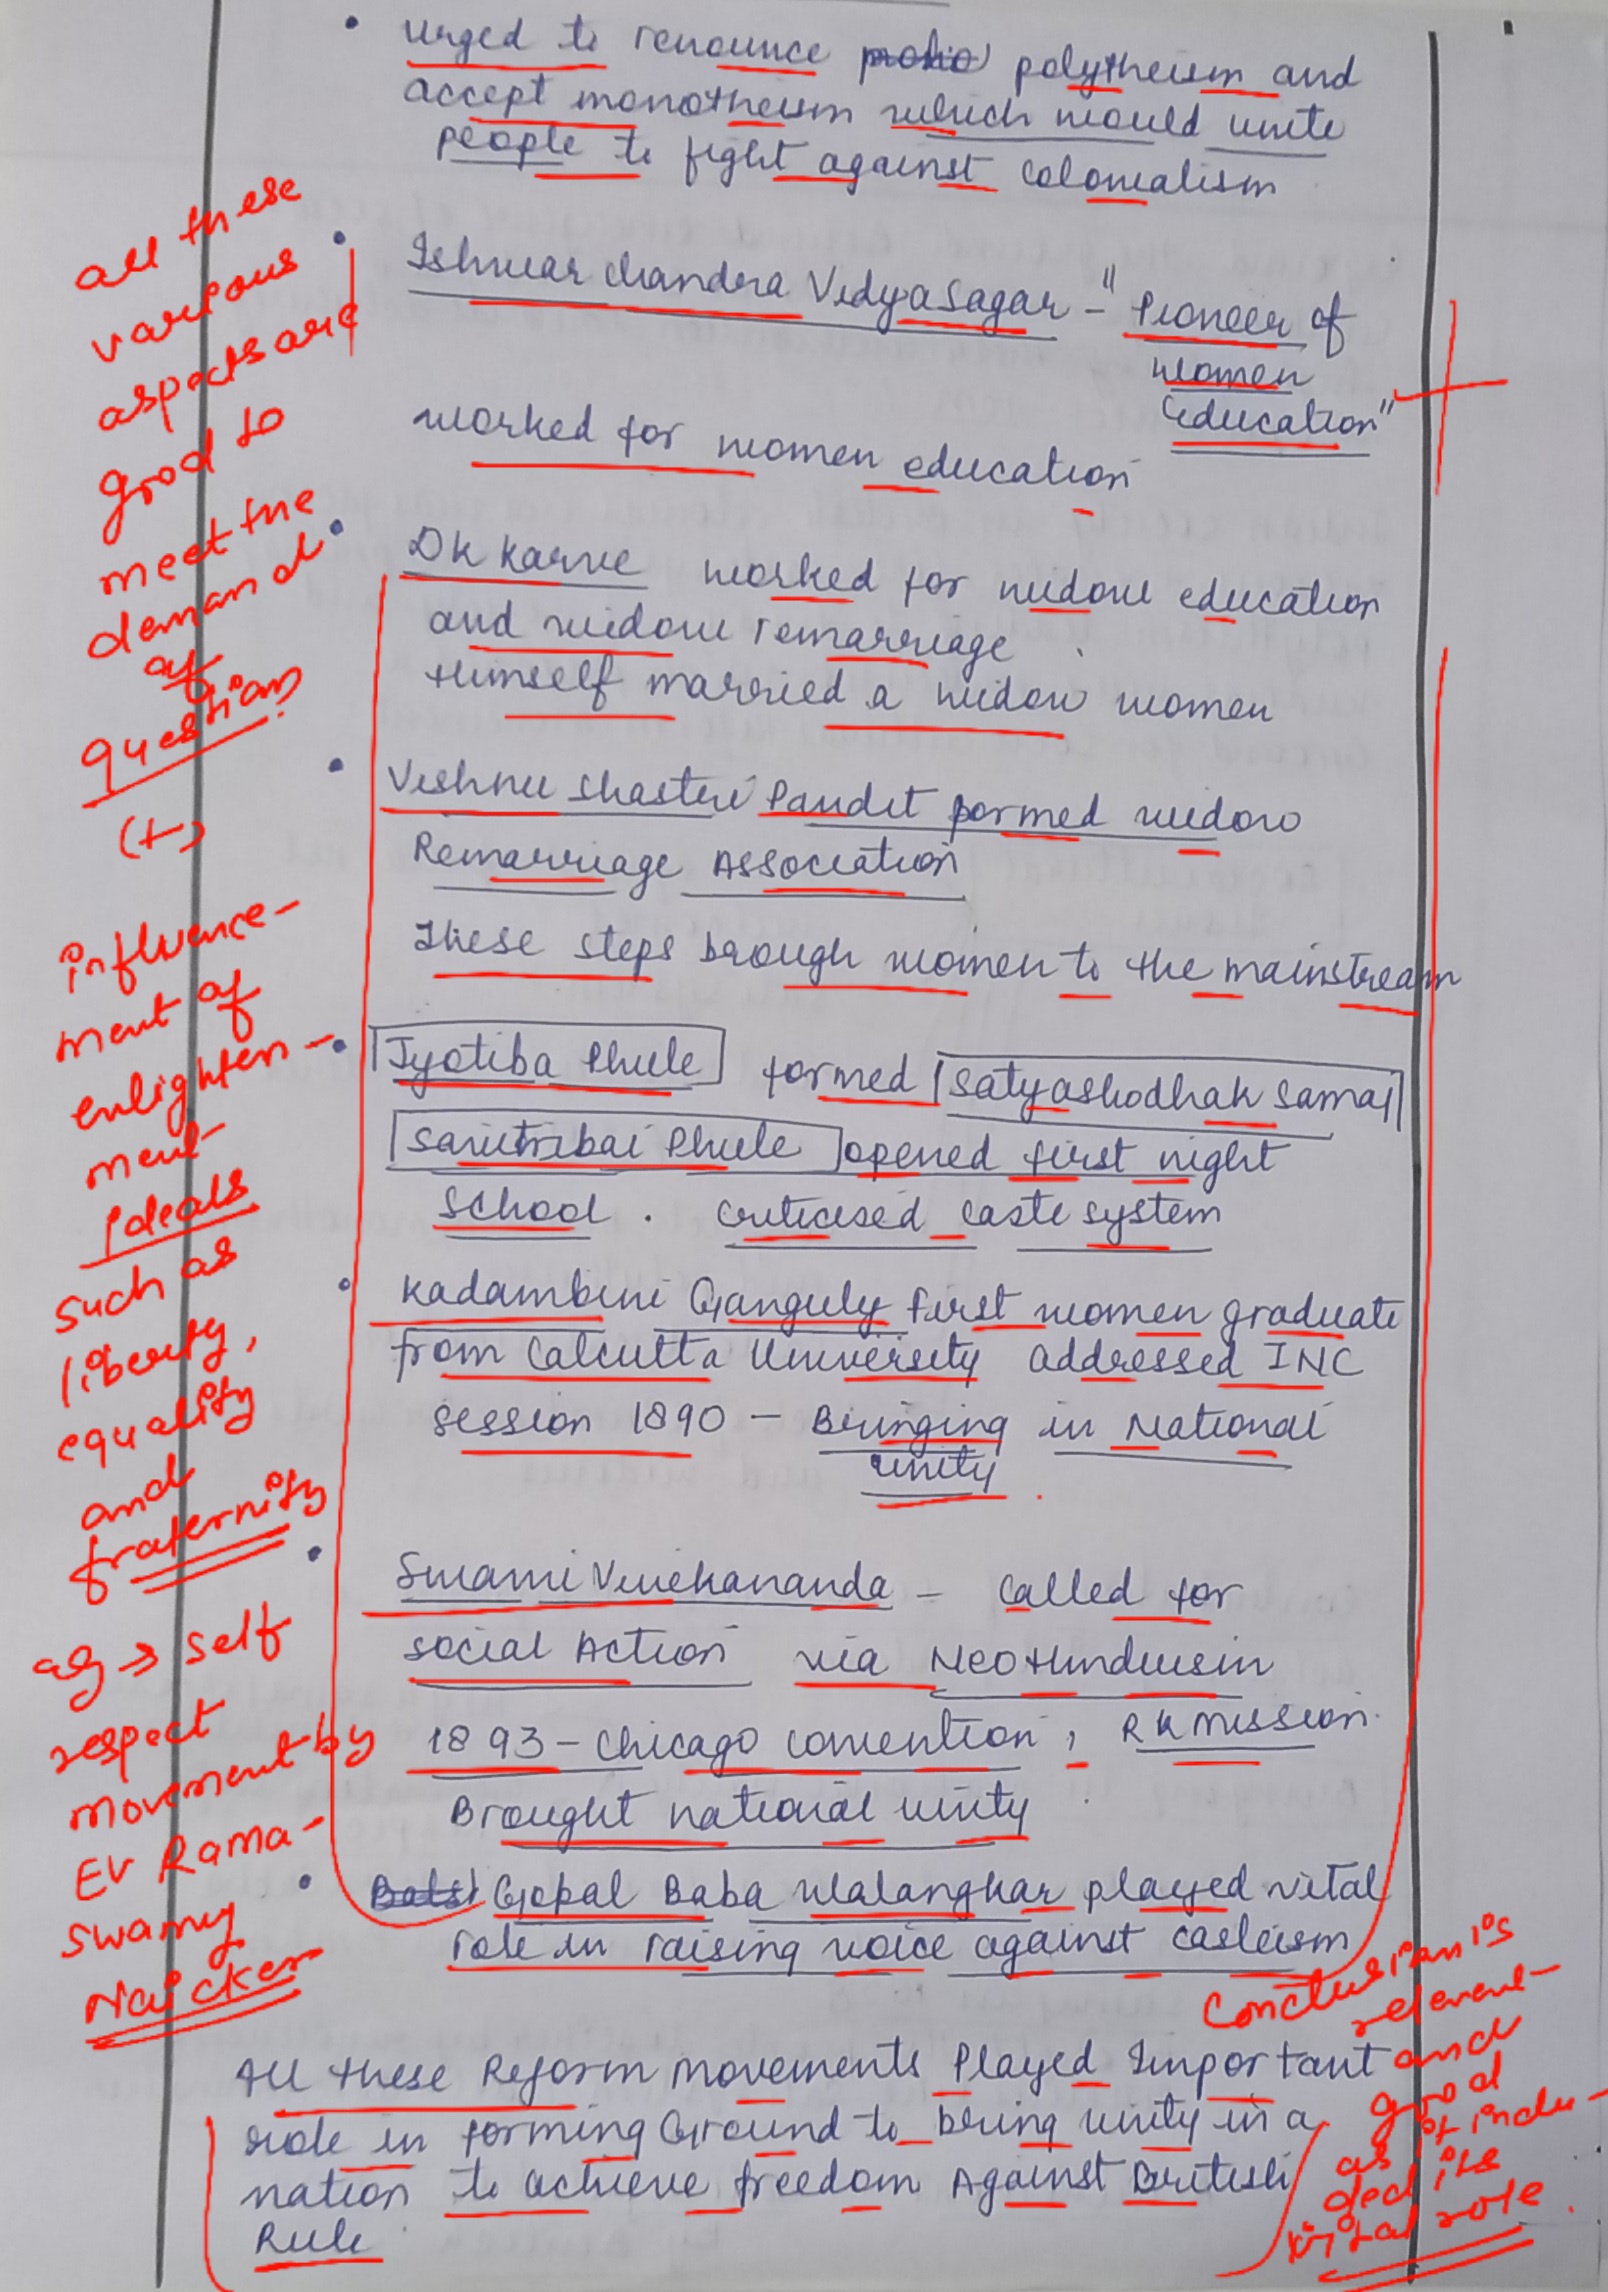 urged to renounce polytheism and
accept monotheism which would unite
people to fight against colonialism
Ishwar Chandra Vidyasagar - "Pioneer of
women
education"
worked for women education
DK Karve worked for widow education
and widow remarriage
Himself married a widow women
Vishnu Shastri Pandit formed widow
Remarriage Association
These steps brough women to the mainstream
Jyotiba Phule formed Satyashodhak Samaj
Savitribai Phule opened first night
School. criticised caste system
Kadambini Ganguly first women graduate
from Calcutta University addressed INC
session 1890 - Bringing in National
unity
Swami Vivekananda - called for
social Action via Neo Hinduism
1893 - Chicago convention, RK Mission.
Brought national unity
Gopal Baba Walangkar played vital
role in raising voice against casteism
All these Reform movements Played Important
role in forming Ground to bring unity in a
nation to achieve freedom Against British
Rule
all these
various
aspects are
good to
meet the
demand
of
question
(+)
influence-
ment of
enlighten-
ment
ideals
such as
liberty,
equality
and
fraternity
eg → self
respect
movement by
EV Rama-
swamy
Naicker
Conclusion is
relevent
and
good
as it inclu-
ded its
vital role.